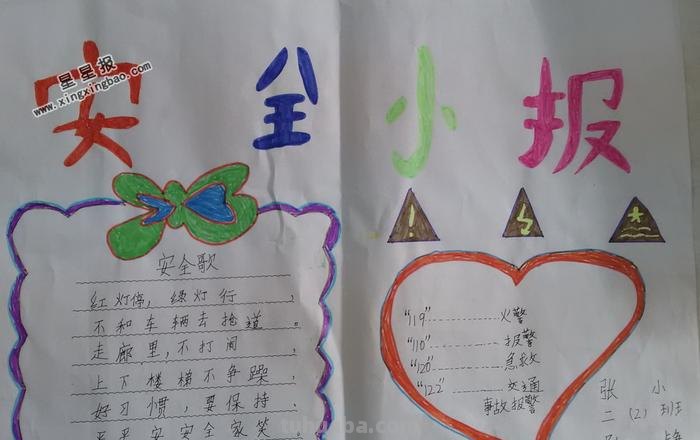 安全小报
星星报
www.xingxingbao.com
安全歌
红灯停，绿灯行，
不和车辆去抢道。
走廊里，不打闹，
上下楼梯不争躁，
好习惯，要保持，
平平安安全家笑。
"119"…………火警
"110"…………报警
"120"…………急救
"122"…………交通
事故报警
张 小
二（2）班
tuhuiba.com